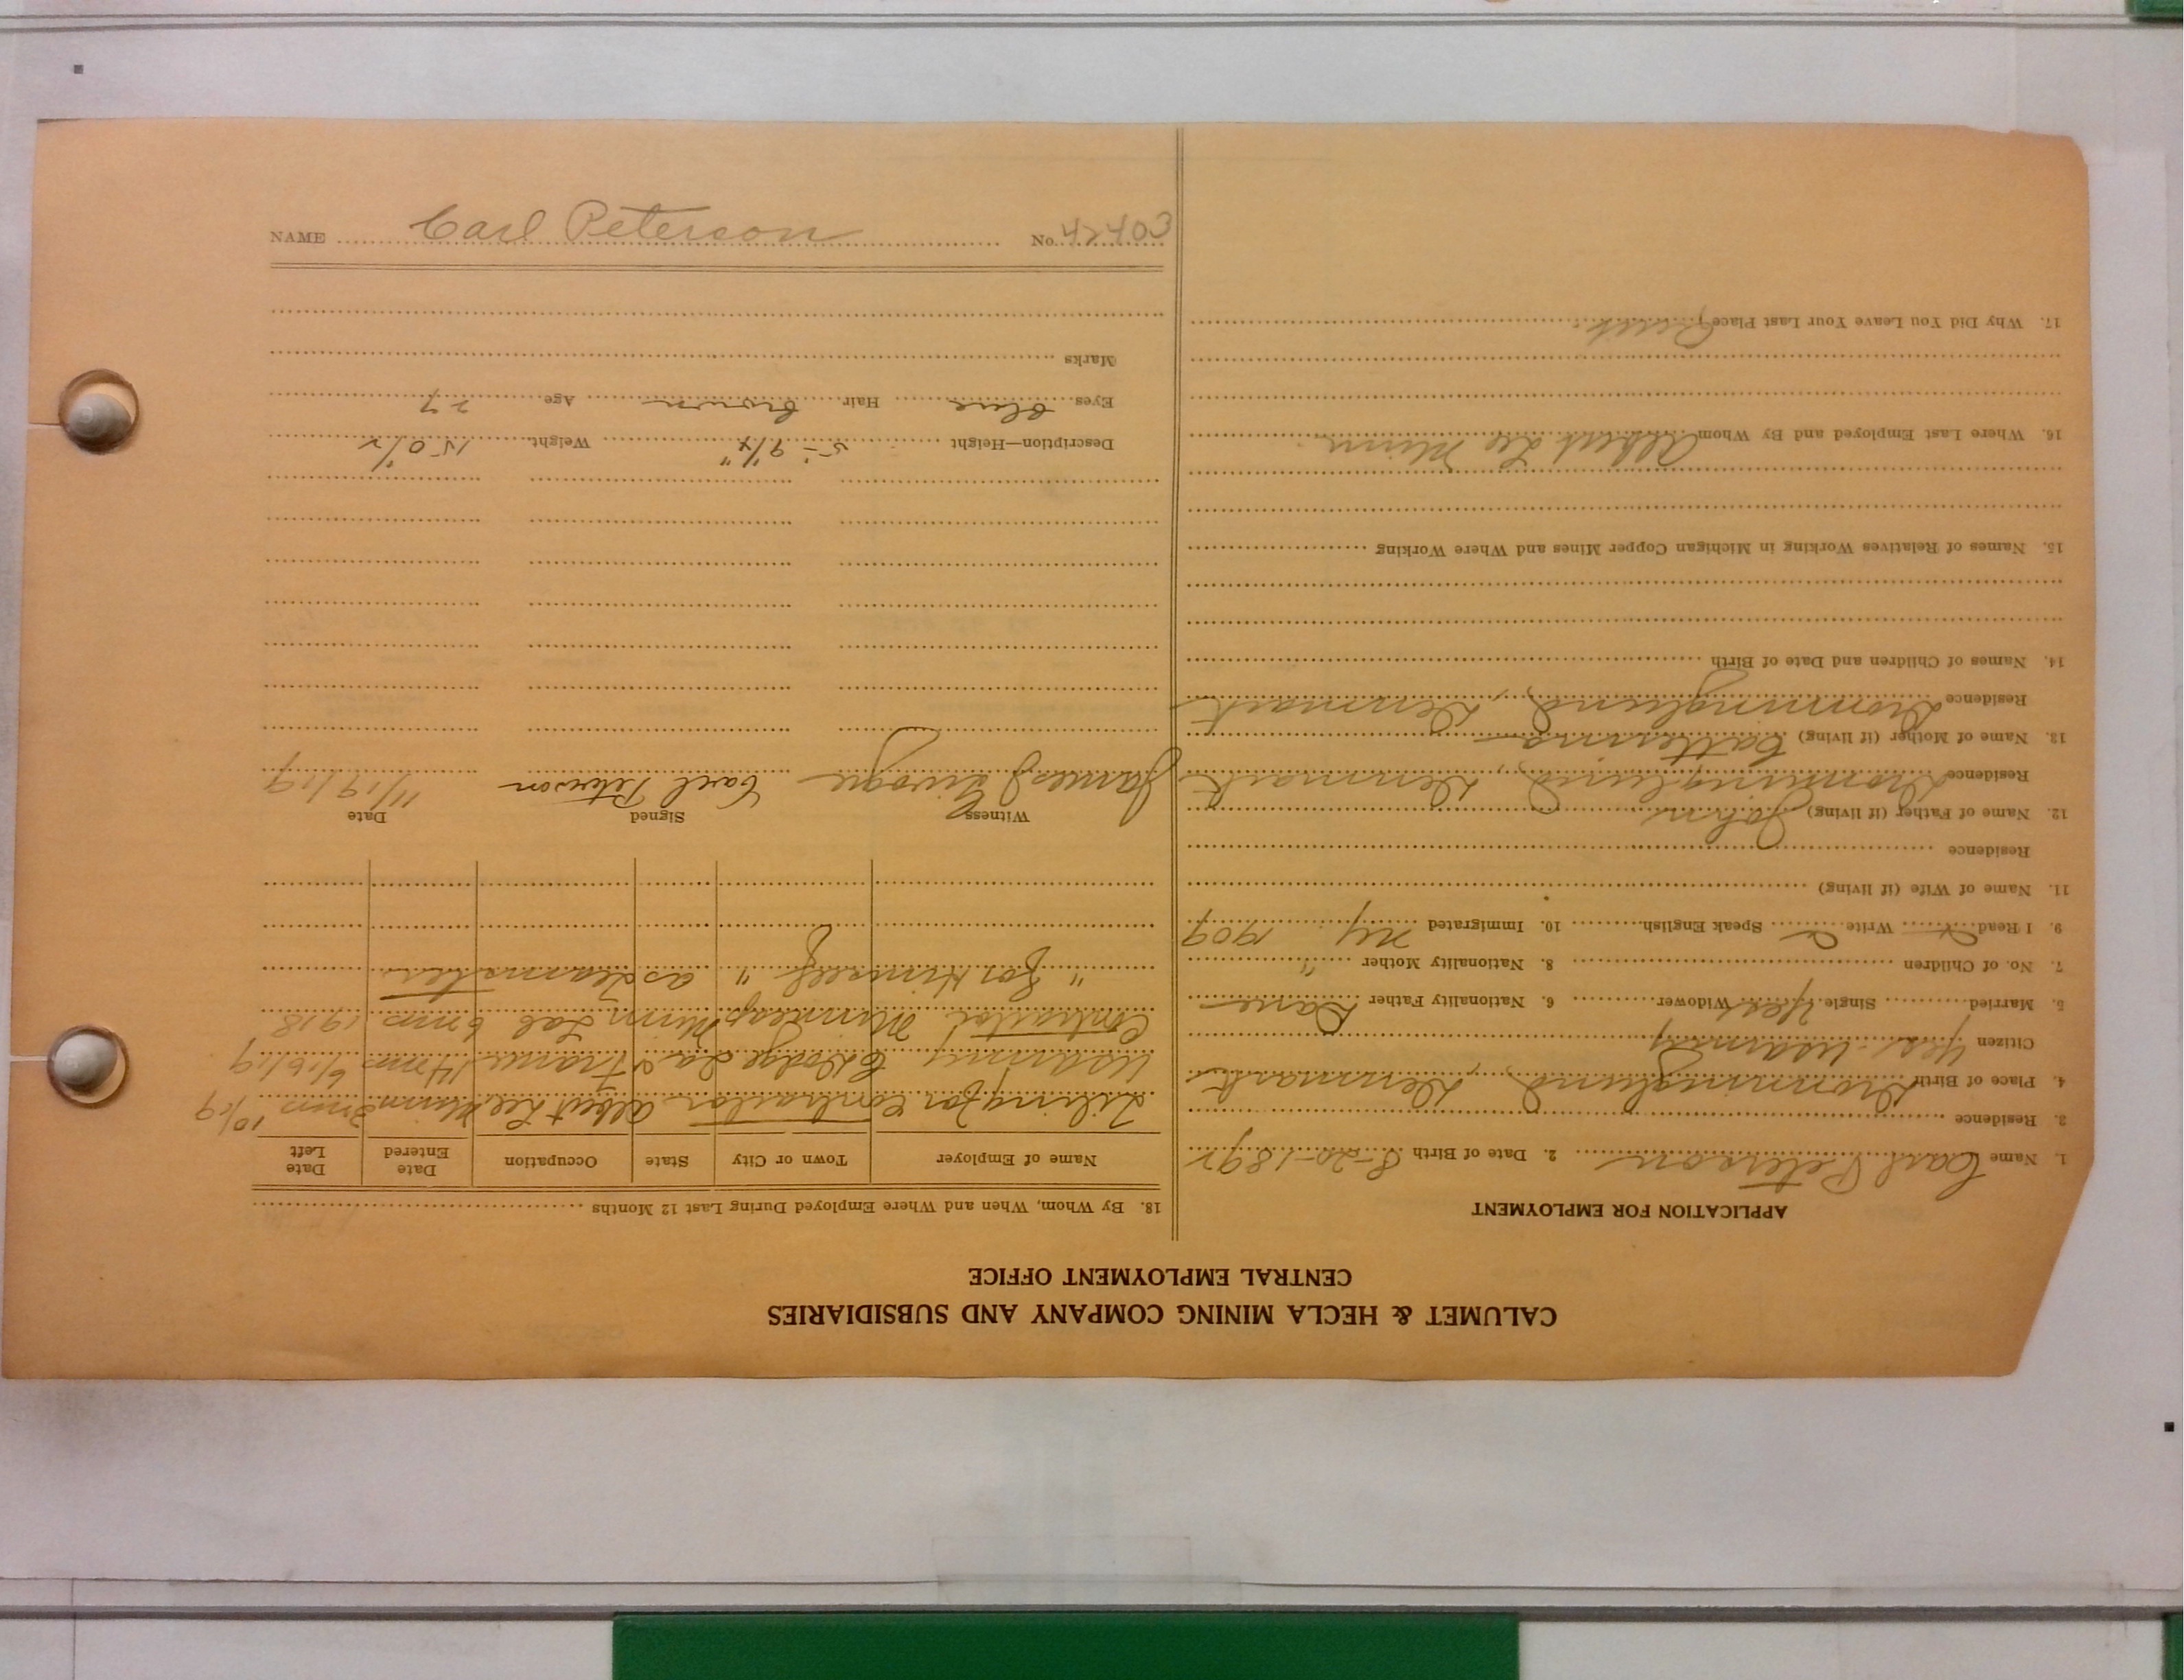 CALUMET & HECLA MINING COMPANY AND SUBSIDIARIES
CENTRAL EMPLOYMENT OFFICE
APPLICATION FOR EMPLOYMENT
1. Name Carl Peterson 2. Date of Birth 8-20-1892
3. Residence
4. Place of Birth Dronninglund, Denmark
Citizen Yes - US army
5. Married Single Yes Widower 6. Nationality Father Dane
7. No. of Children 8. Nationality Mother "
9. I Read Write Speak English 10. Immigrated NY 1909
11. Name of Wife (if living)
Residence
12. Name of Father (if living) John
Residence Dronninglund, Denmark
13. Name of Mother (if living) Catterina
Residence Dronninglund, Denmark
14. Names of Children and Date of Birth
15. Names of Relatives Working in Michigan Copper Mines and Where Working
16. Where Last Employed and By Whom Albert Lee Minn
17. Why Did You Leave Your Last Place Quit
18. By Whom, When and Where Employed During Last 12 Months
Name of Employer Town or City State Occupation Date Entered Date Left
for Contractor Albert Lee Minn 3 mos 10/19
US army C Dodge Ia & France 14 mos 6/16/19
Contractor Minneap Minn Lab 6 mos 1918
" for Himself " as teamster
Witness Signed Date
James Carl Peterson 11/19/19
Description—Height 5 - 9 1/4" Weight 150 1/2
Eyes blue Hair brown Age 27
Marks
NAME Carl Peterson No. 42403